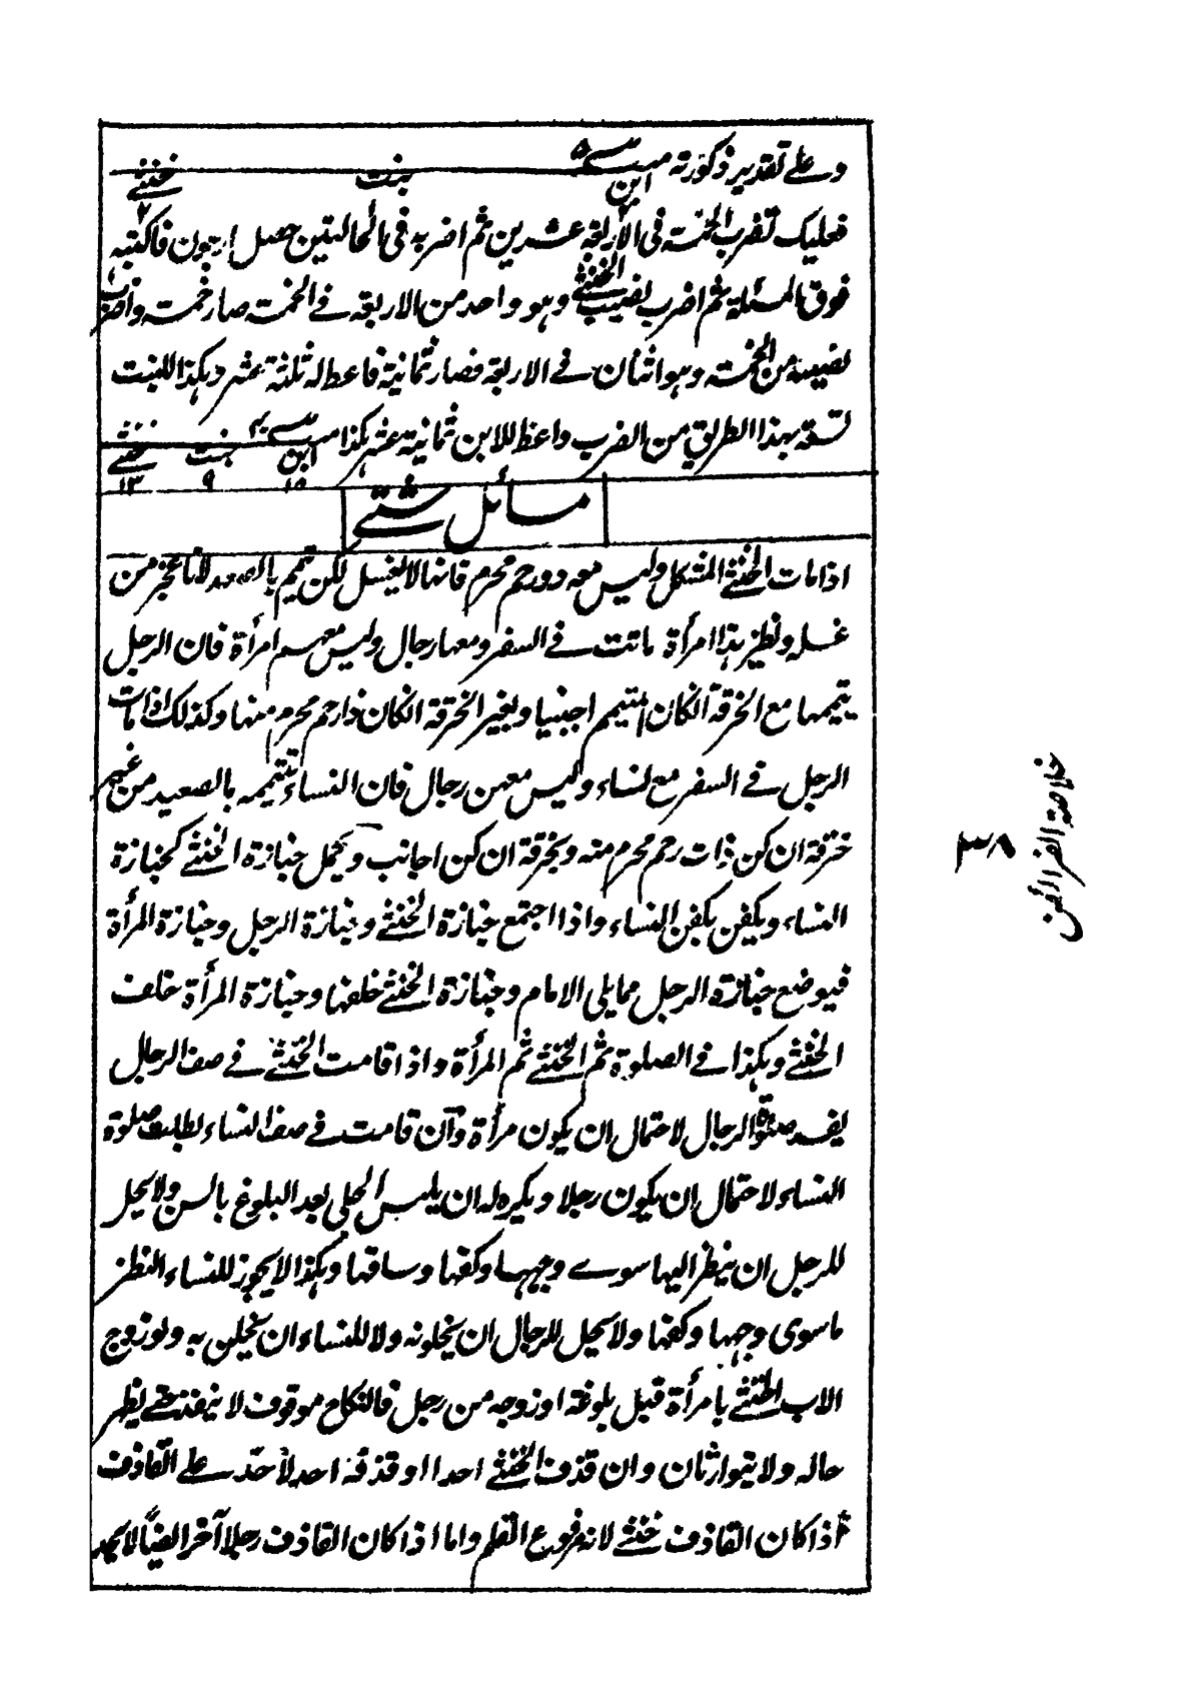 وعلے تقدیر ذکورته مســـئلة ۵
ابن ۲ بنت خنثے ۲
فعلیک تضرب الخمسة فی الأربعة عشرین ثم اضربه فی الحالتین حصل اربعون فاکتبه
فوق المسئلة ثم اضرب نصیب الخنثے وهو واحد من الاربعة فے الخمسة صار خمسة واضرب
نصیبه من الخمسة وهو اثنان فے الاربعة فصار ثمانیة فاعطاه ثلثة عشر وهکذا للبنت
تسعة بهذا الطریق من الضرب واعط للابن ثمانیة عشر هکذا مســـئلة ۴۰
ابن ۱۸ بنت ۹ خنثے ۱۳
مسائل شتے
اذا مات الخنثے المشکل ولیس معه ذو رحم محرم فانها لا یغسل لکن تیمم بالصعید لانا عجز من
غسله ونظیر هذا امرأة ماتت فے السفر ومعها رجال ولیس معهم امرأة فان الرجل
یتیمها مع الخرقة انکان المتیمم اجنبیا وبغیر الخرقة انکان ذا رحم محرم منها وکذلک اذا مات
الرجل فے السفر مع نساء ولیس معهن رجال فان النساء تتیممه بالصعید من غیر
خرقة ان کن ذات رحم محرم منه وبخرقة ان کن اجانب ویحمل جنازة الخنثے کجنازة
النساء ویکفن بکفن النساء واذا اجتمع جنازة الخنثے وجنازة الرجل وجنازة المرأة
فیوضع جنازة الرجل مما یلی الامام وجنازة الخنثے خلفها وجنازة المرأة خلف
الخنثے وهکذا فے الصلوة ثم الخنثے ثم المرأة واذا قامت الخنثے فے صف الرجال
یفسد صلوة الرجال لاحتمال ان یکون مرأة وان قامت فے صف النساء بطلت صلوة
النساء لاحتمال ان یکون رجلا ویکره له ان یلبس الحلی بعد البلوغ بالسن ولا یحل
للرجل ان ینظر الیها سوے وجهها وکفها وساقها وهکذا لا یجوز للنساء النظر
ما سوی وجهها وکفها ولا یحل للرجال ان یخلونه ولا للنساء ان یخلین به ولو زوج
الاب الخنثے بامرأة قبل بلوغه او زوجه من رجل فالنکاح موقوف لا ینفذ حتے یظهر
حاله ولا یتوارثان وان قذف الخنثے احدا او قذفه احد لا حد علی القاذف
اذا کان القاذف خنثے لانه مرفوع القلم واما اذا کان القاذف رجلا آخر ایضًا لا یحد
خلاصة الفرائض
۳۸